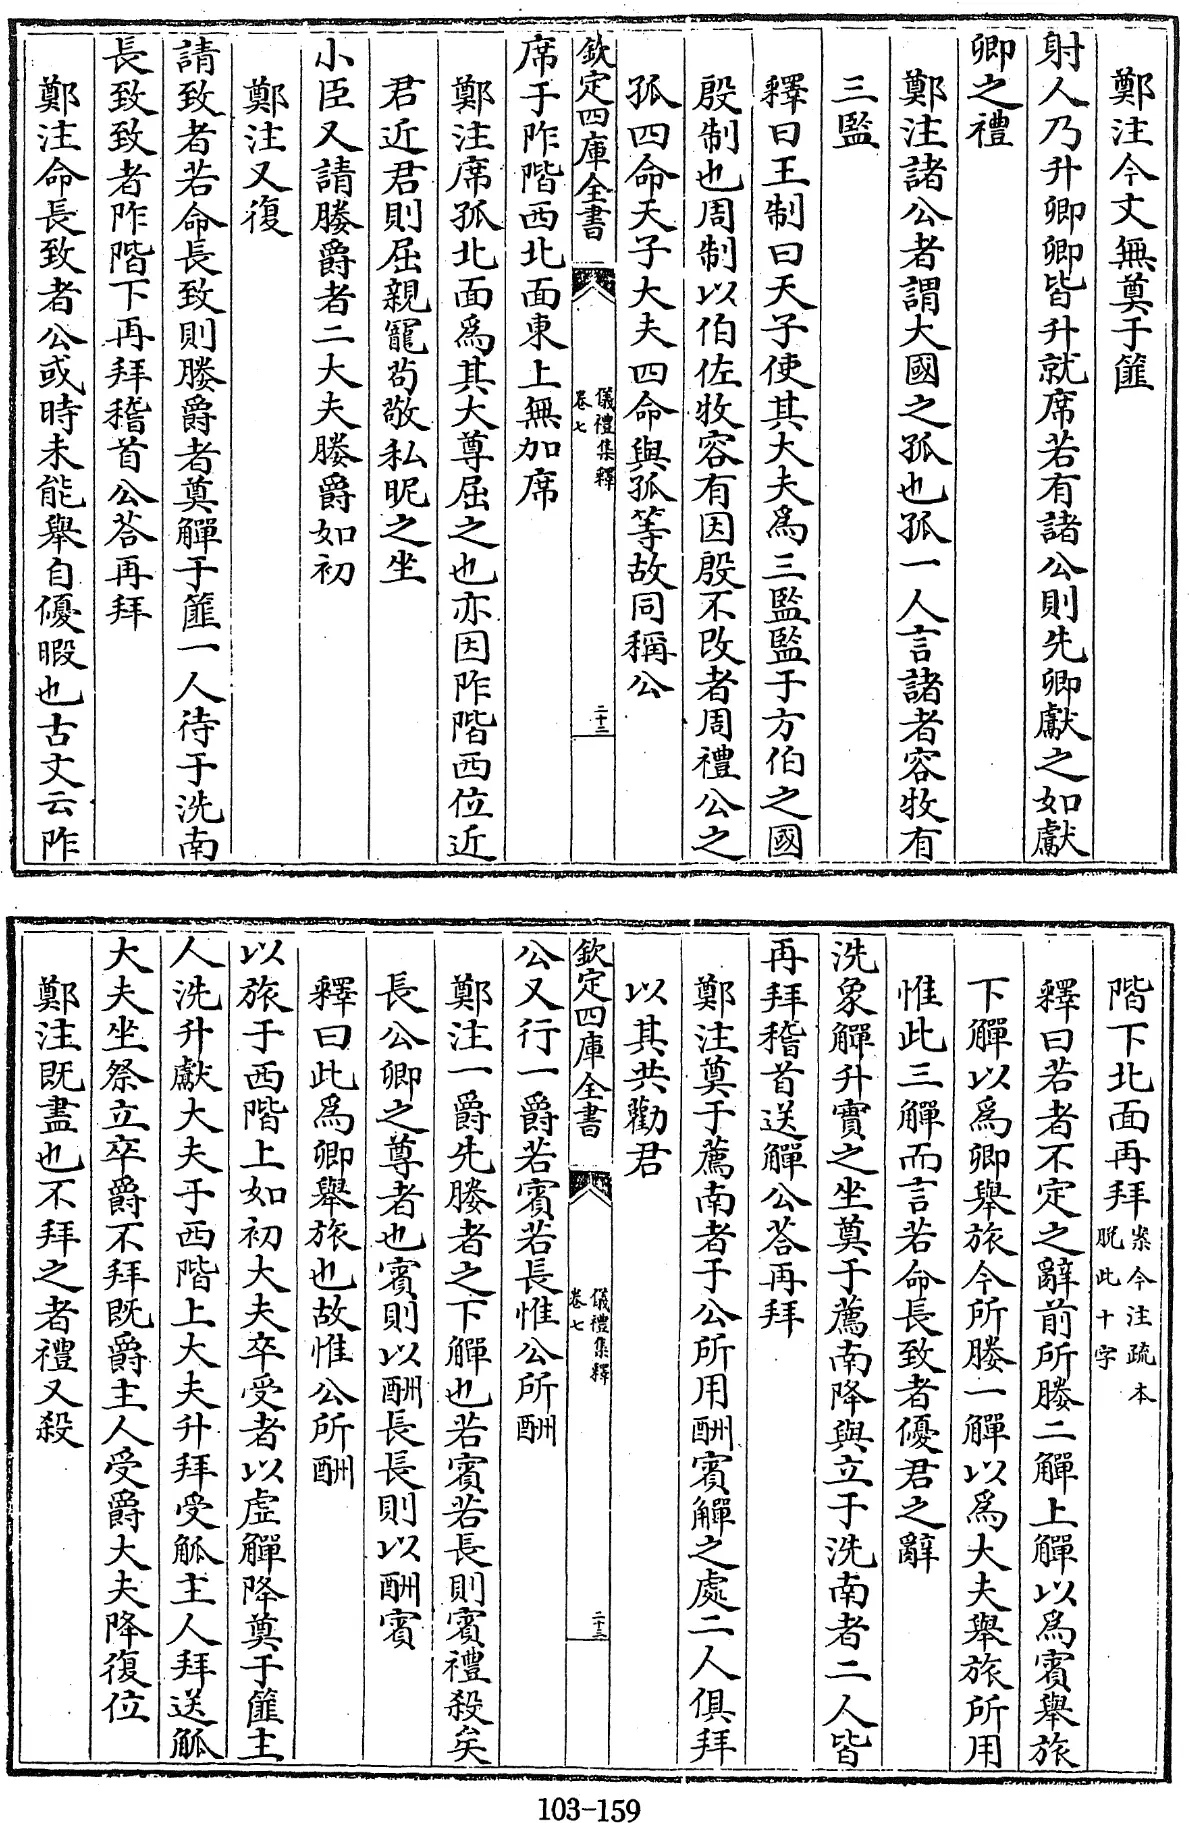 鄭注今文無奠于篚
射人乃升卿卿皆升就席若有諸公則先卿獻之如獻
卿之禮
鄭注諸公者謂大國之孤也孤一人言諸者容牧有
三監
釋曰王制曰天子使其大夫為三監監于方伯之國
殷制也周制以伯佐牧容有因殷不改者周禮公之
孤四命天子大夫四命與孤等故同稱公
欽定四庫全書
儀禮集釋
卷七
二十二
席于阼階西北面東上無加席
鄭注席孤北面為其大尊屈之也亦因阼階西位近
君近君則屈親寵苟敬私昵之坐
小臣又請媵爵者二大夫媵爵如初
鄭注又復
請致者若命長致則媵爵者奠觶于篚一人待于洗南
長致致者阼階下再拜稽首公荅再拜
鄭注命長致者公或時未能舉自優暇也古文云阼
階下北面再拜
案今注疏本
脫此十字
釋曰若者不定之辭前所媵二觶上觶以為賓舉旅
下觶以為卿舉旅今所媵一觶以為大夫舉旅所用
惟此三觶而言若命長致者優君之辭
洗象觶升實之坐奠于薦南降與立于洗南者二人皆
再拜稽首送觶公荅再拜
鄭注奠于薦南者于公所用酬賓觶之處二人俱拜
以其共勸君
欽定四庫全書
儀禮集釋
卷七
二十三
公又行一爵若賓若長惟公所酬
鄭注一爵先媵者之下觶也若賓若長則賓禮殺矣
長公卿之尊者也賓則以酬長長則以酬賓
釋曰此為卿舉旅也故惟公所酬
以旅于西階上如初大夫卒受者以虛觶降奠于篚主
人洗升獻大夫于西階上大夫升拜受觚主人拜送觚
大夫坐祭立卒爵不拜既爵主人受爵大夫降復位
鄭注既盡也不拜之者禮又殺
103-159